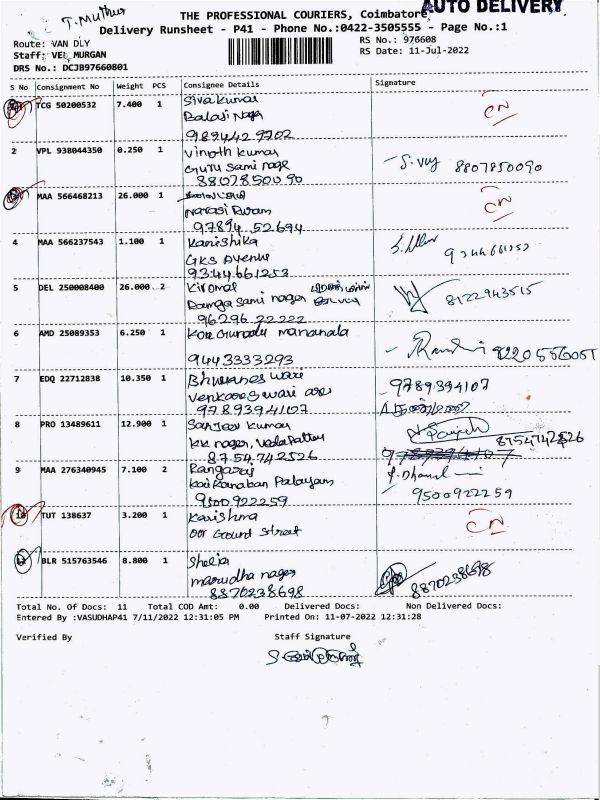 T. Muthu
AUTO DELIVERY
THE PROFESSIONAL COURIERS, Coimbatore
Delivery Runsheet - P41 - Phone No.:0422-3505555 - Page No.:1
Route: VAN DLY
RS No.: 976608
Staff: VEL MURGAN
RS Date: 11-Jul-2022
DRS No.: DCJB97660801
S No Consignment No Weight PCS Consignee Details Signature
1 TCG 50200532 7.400 1 Sivakumar
Balaji Nagar
CN
2 VPL 938044350 0.250 1 Vinoth kumar
Guru Sami nage
8807850090
8807850090
3 MAA 566468213 26.000 1
CN
97894 52694
4 MAA 566237543 1.100 1 Kanishka
GKS Avenue
9344661253
9344661253
5 DEL 250008400 26.000 2
nager
8122943515
96296 22222
6 AMD 25089353 6.250 1
9443333293
8220556051
7 EDQ 22712838 10.350 1 Bhuvaneswari
9789394107
9789394107
8 PRO 13489611 12.900 1 Sanjeev kumar
KK nager, Vadapattay
8754742526
8754742526
9 MAA 276340945 7.100 2 Rangaraj
Palayam
9500922259
9500922259
10 TUT 138637 3.200 1 Karishma
Ground Street
CN
11 BLR 515763546 8.800 1 Sheeja
marudha nager
8870238698
8870238698
Total No. Of Docs: 11 Total COD Amt: 0.00 Delivered Docs: Non Delivered Docs:
Entered By :VASUDHAP41 7/11/2022 12:31:05 PM Printed On: 11-07-2022 12:31:28
Verified By Staff Signature